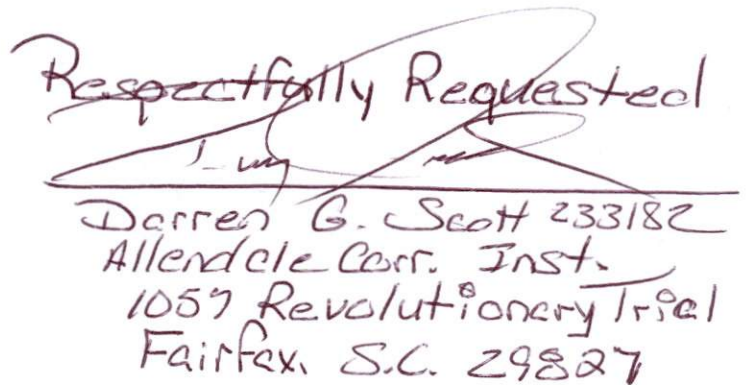 Respectfully Requested
Darren G. Scott 233182
Allendale Corr. Inst.
1057 Revolutionary Trial
Fairfax, S.C. 29827